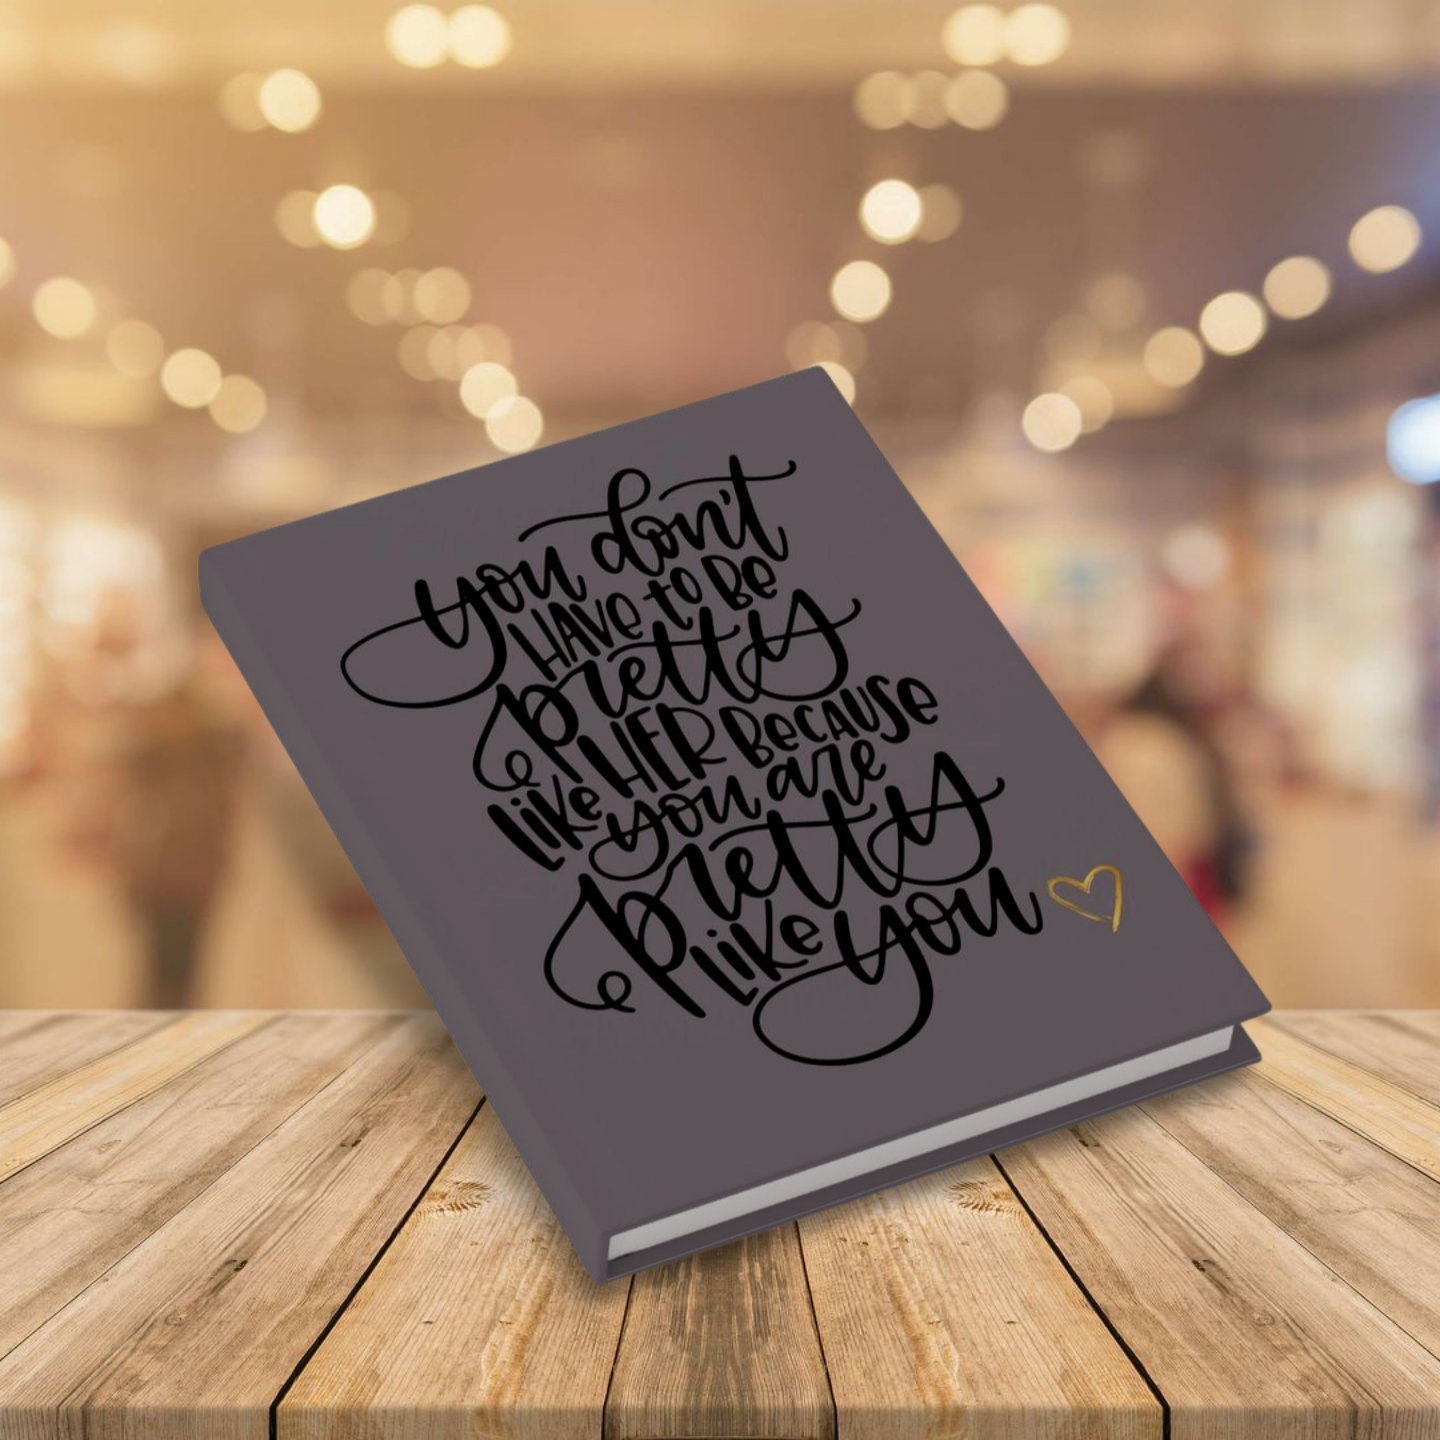 you don't
HAVE to Be
pretty
like HER BecAUSe
you are
pretty
like you